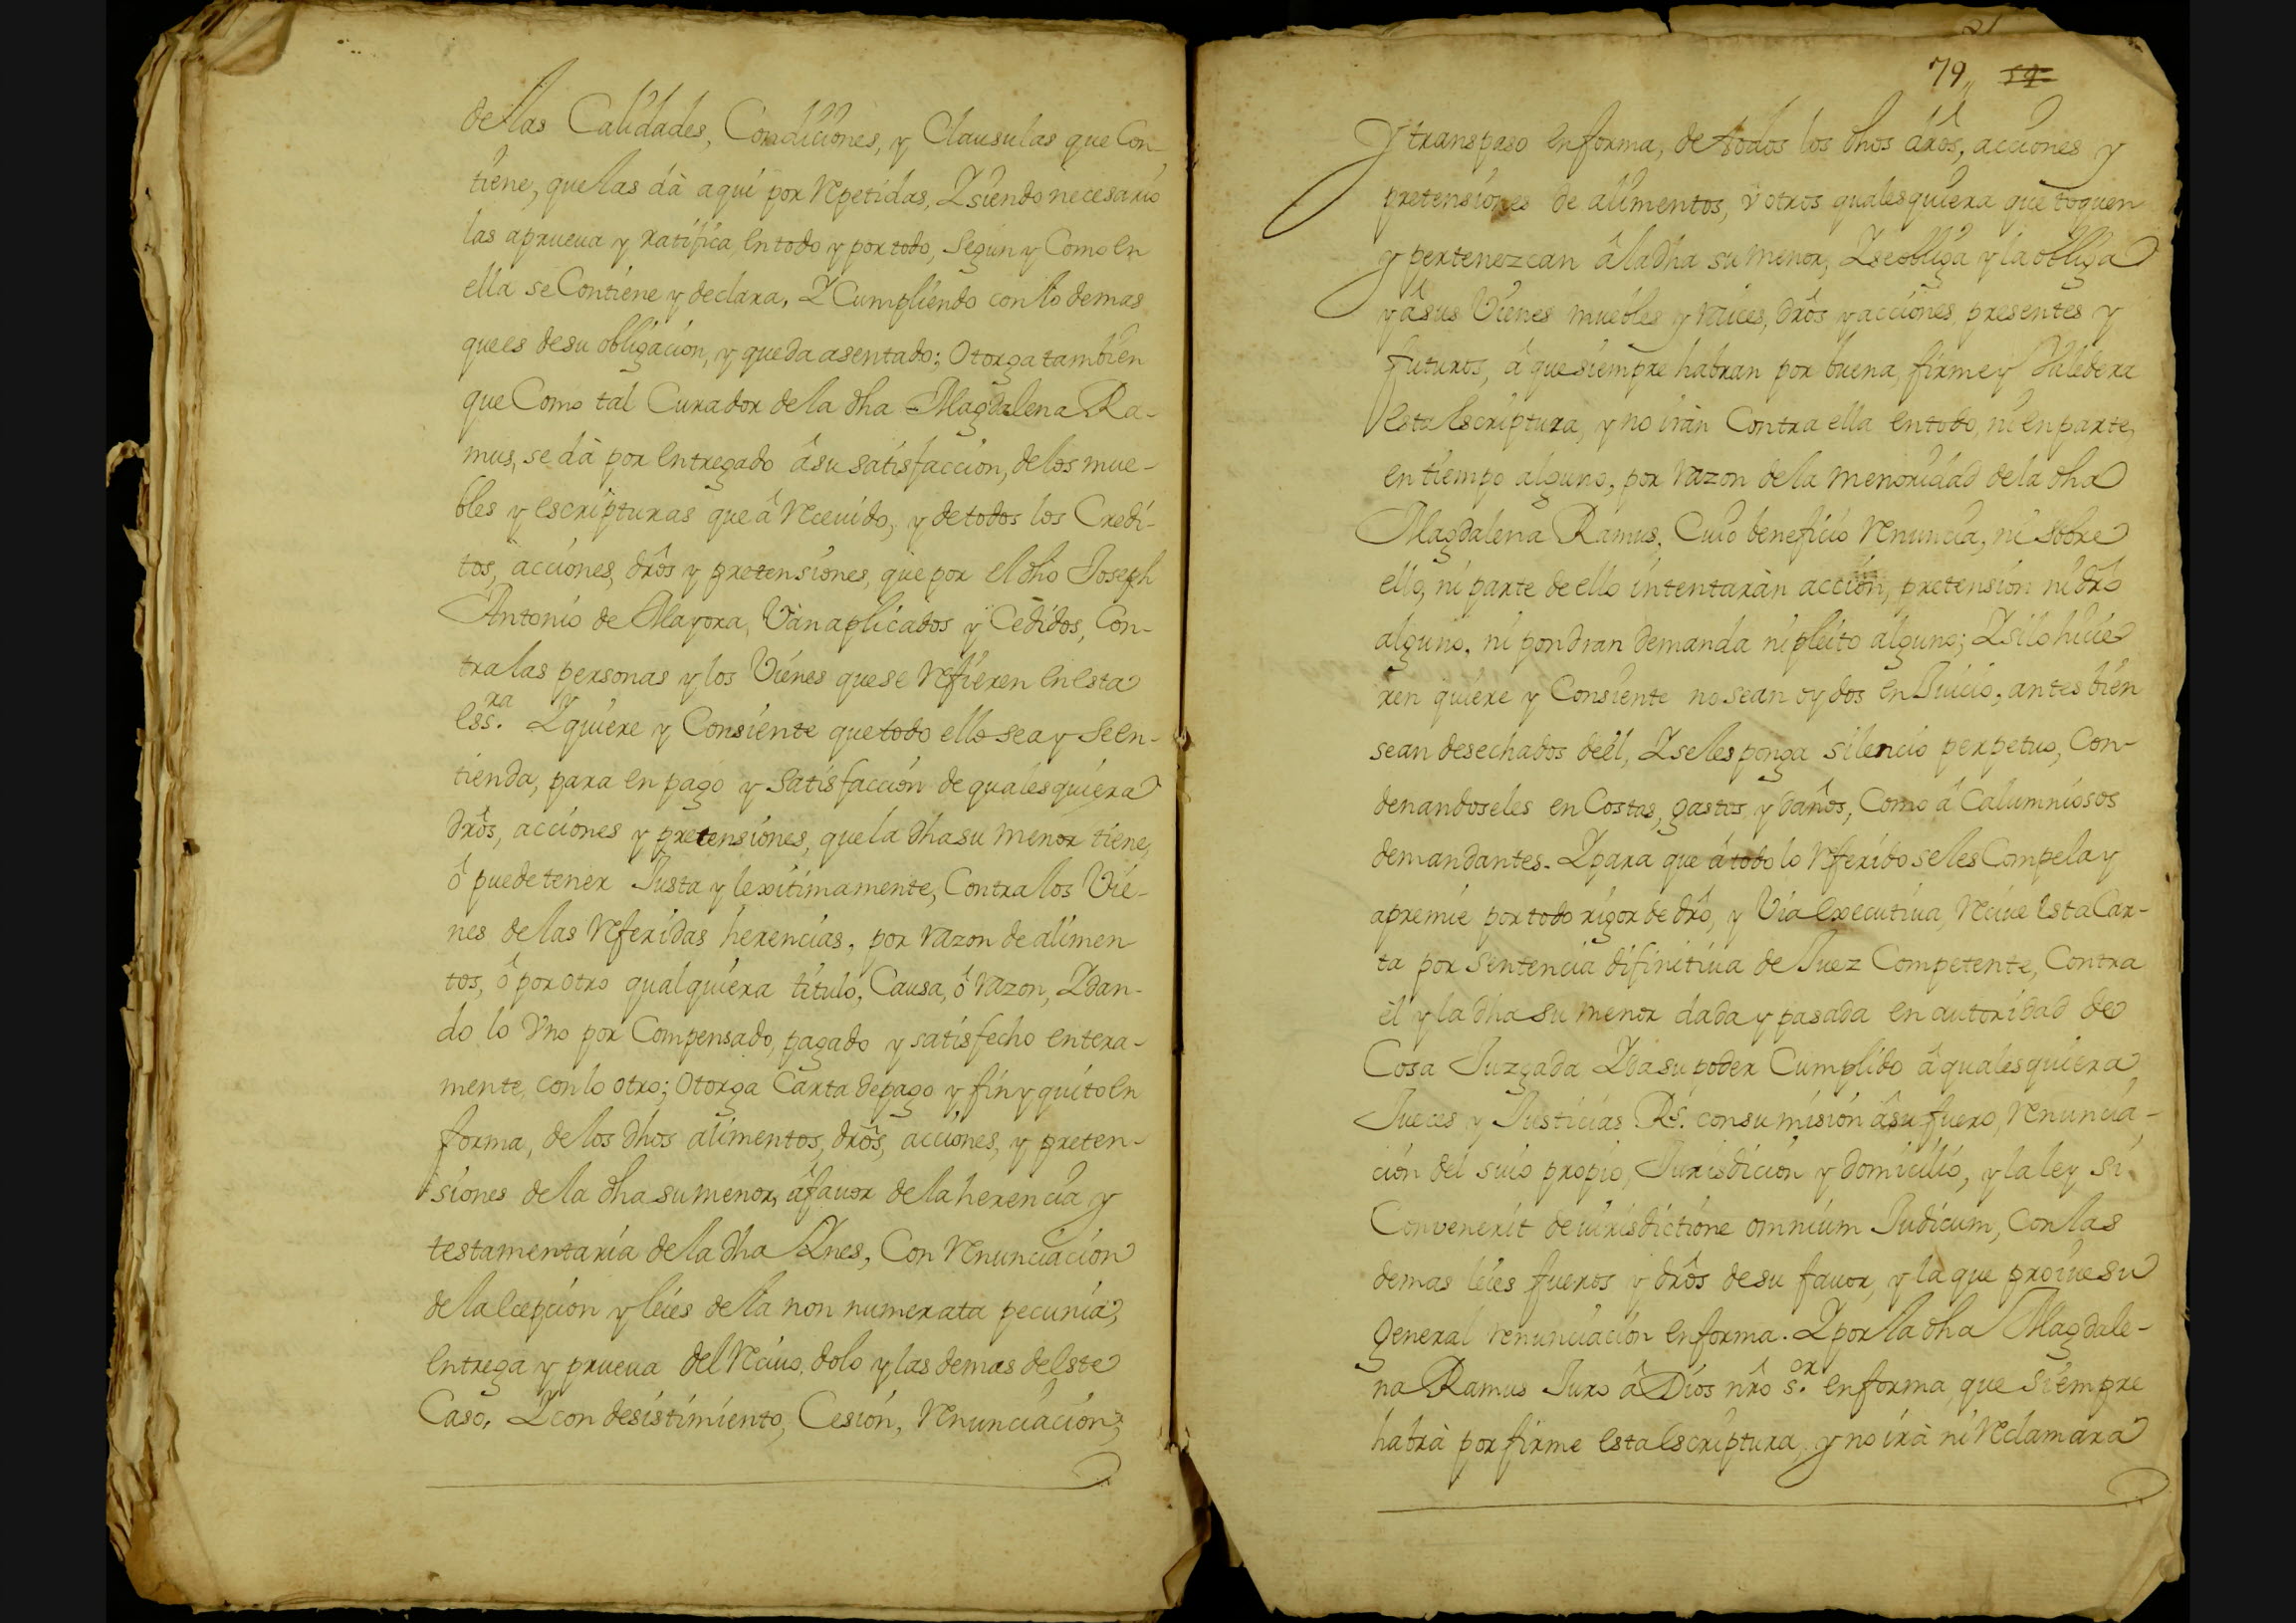 de las Calidades, Condiciones, y Clausulas que Con-
tiene, que las dà aqui por Repetidas, Y siendo necesario
las aprueua y ratifica en todo y por todo, según y Como en
ella se Contiene y declara, Y Cumpliendo con lo demas
que es de su obligacion, y queda asentado; Otorga tambien
que Como tal Curador de la dha Magdalena Ra-
mus, se dà por entregado â su satisfaccion, de los mue-
bles y escripturas que â Receuido, y de todos los Credi-
tos, acciones, drôs y pretensiones, que por el dho Joseph
Antonio de Mayora, Vàn aplicados y Cedidos, Con-
tra las personas y los Vienes que se Refieren en esta
ess.ra Y quiere y Consiente que todo ello sea y se en-
tienda, para en pago y satisfacción de quales quiera
drôs, acciones y pretensiones, que la dha su menor tiene,
ô puede tener Justa y lexitimamente, Contra los Vie-
nes de las Referidas herencias, por razon de alimen-
tos, ô por otro qualquiera titulo, Causa, ô razon, Y dan-
do lo Vno por Compensado, pagado y satisfecho entera-
mente, con lo otro; Otorga Carta de pago y fin y quito en
forma, de los dhos alimentos, drôs, acciones, y preten-
siones de la dha su menor, â fauor de la herencia y
testamentaria de la dha Ynes, Con Renunciacion
de la Ecepcion y leies de la non numerata pecunia,
entrega y prueua del Reciuo, dolo y las demas de este
Caso. Y con desistimiento, Cesión, Renunciación,
21
79 54
Y transpaso en forma, de todos los dhos drôs, acciones y
pretensiones de alimentos, ù otros quales quiera que toquen
y pertenezcan â la dha su menor, Y se obliga y la obliga
y â sus Vienes muebles y raices, drôs y acciones presentes y
futuros, â que siempre habran por buena, firme y Valedera
esta Escriptura, y no iràn Contra ella en todo, ni en parte,
en tiempo alguno, por razon de la menoridad de la dha
Magdalena Ramus, Cuio beneficio Renuncia, ni sobre
ello, ni parte de ello intentaràn acción, pretension ni drô
alguno, ni pondran demanda ni pleito alguno; Y si lo hicie
ren quiere y Consiente no sean oydos en Juicio; antes bien
sean desechados de èl, Y se les ponga silencio perpetuo, Con-
denandoseles en Costas, gastos y daños, Como â Calumniosos
demandantes. Y para que â todo lo Referido se les Compela y
apremie por todo rigor de drô, y Via executiua, Reciue esta Car-
ta por sentencia difinitiua de Juez Competente, Contra
èl y la dha su menor dada y pasada en autoridad de
Cosa Juzgada Y da su poder Cumplido â quales quiera
Jueces y Justicias R.s con sumisión â su fuero, Renuncia-
ción del suio propio, Jurisdición y domicilio, y la ley si
Convenerit de iurisdictione omnium Judicum, Con las
demas leies fueros y drôs de su fauor, y la que proiue su
General renunciación en forma. Y por la dha Magdale-
na Ramus Juro â Dios nrô s.or en forma, que siempre
habrà por firme esta escriptura, y no irà ni Reclamara